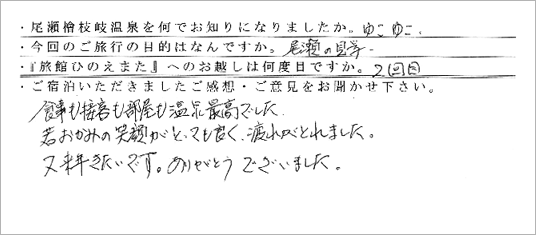 ・尾瀬檜枝岐温泉を何でお知りになりましたか。ゆこゆこ
・今回のご旅行の目的はなんですか。尾瀬の見学
・『旅館ひのえまた』へのお越しは何度目ですか。2回目
・ご宿泊いただきましたご感想・ご意見をお聞かせ下さい。
食事も接客も部屋も温泉最高でした。
若おかみの笑顔がとっても良く、疲れがとれました。
又来年きたいです。ありがとうございました。